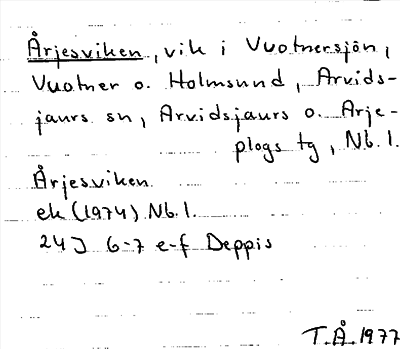 Årjesviken, vik i Vuotnersjön,
Vuotner o. Holmsund, Arvids-
jaurs sn, Arvidsjaurs o. Arje-
plogs tg, Nb. l.
Årjesviken
ek (1974) Nb. l.
24J 6-7 e-f Deppis
T.Å. 1977